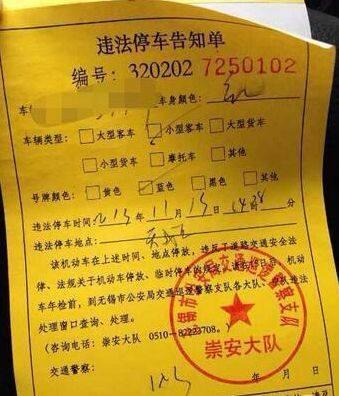 违法停车告知单
编号：320202 7250102
车 车身颜色：红
车辆类型：□大型客车 □小型客车 □大型货车
□小型货车 □摩托车 □其他
号牌颜色：□黄色 □蓝色 □黑色 □其他
违法停车时间：2013年11月15日14时28分
违法停车地点：
该机动车在上述时间、地点停放，违反了道路交通安全法
律、法规关于机动车停放、临时停车的规定，请在15日后、机动
车年检前，到无锡市公安局交通巡逻警察支队各大队、中队违法
处理窗口查询、处理。
（咨询电话：崇安大队 0510-82223708。）
交通警察：
年 月 日
无锡市公安局交通巡逻警察支队
崇安大队